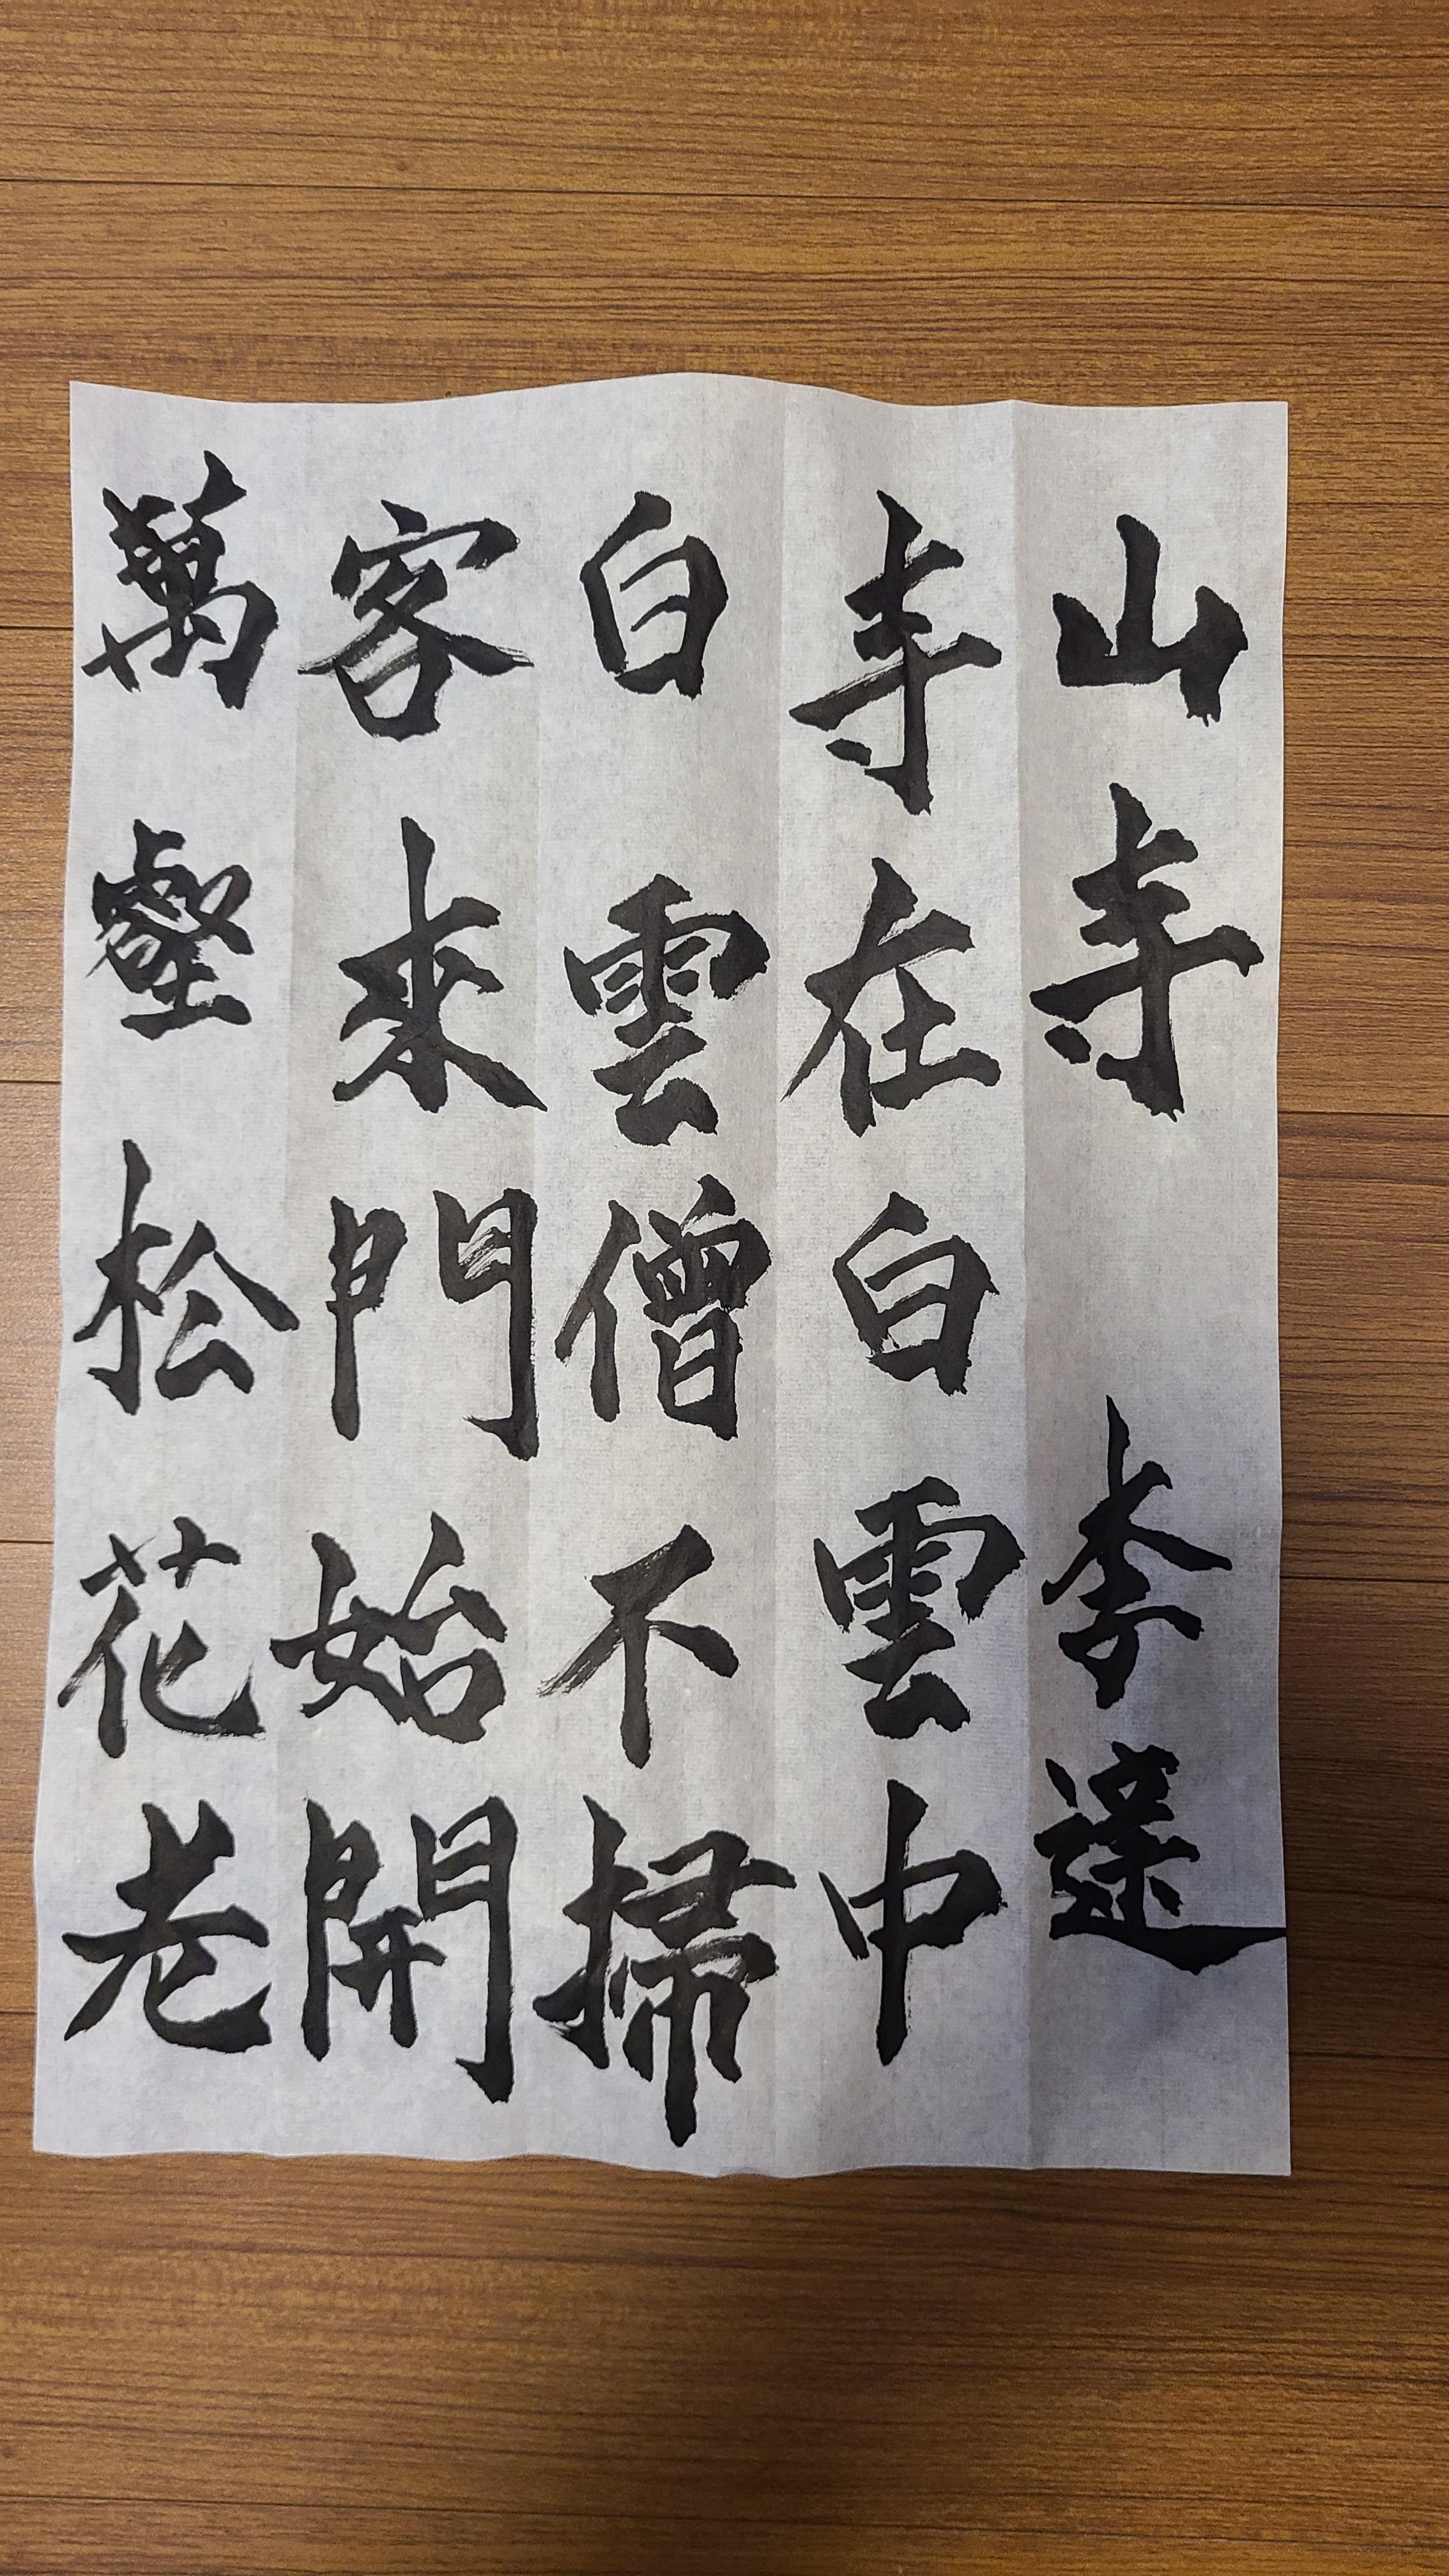 山寺 李達
寺在白雲中
白雲僧不掃
客來門始開
萬壑松花老